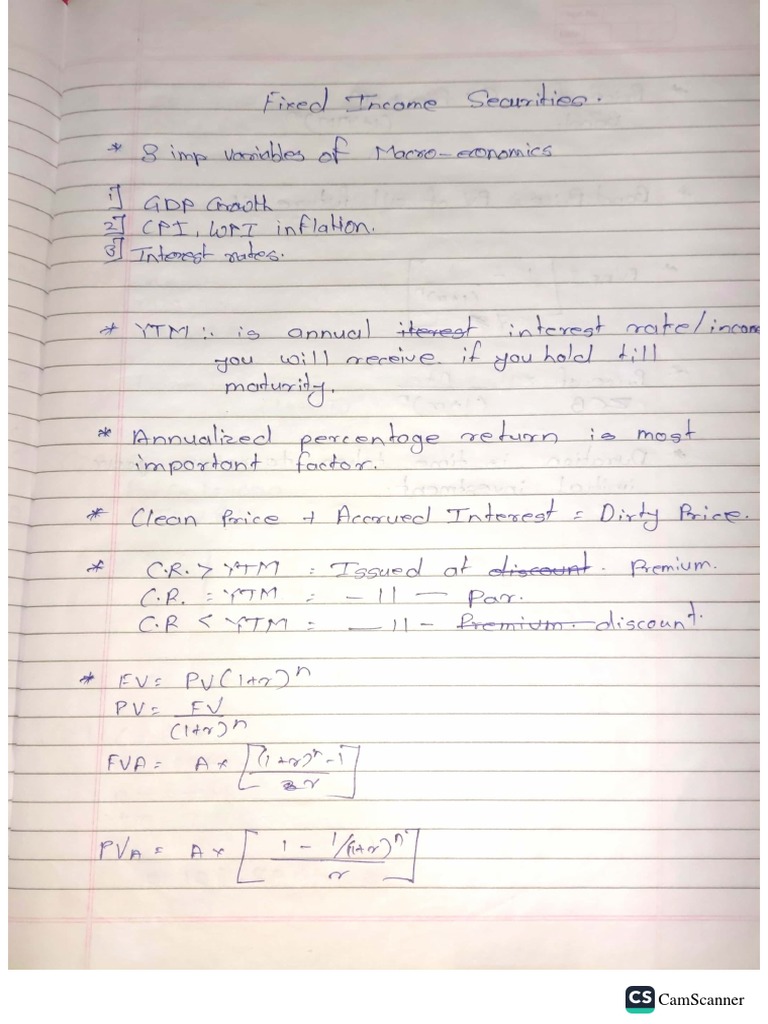 Fixed Income Securities.
* 3 imp variables of Macro-economics
1] GDP Growth
2] CPI, WPI inflation.
3] Interest rates.
* YTM :- is annual iterest interest rate/income
you will receive if you hold till
maturity.
* Annualized percentage return is most
important factor.
* Clean Price + Accrued Interest = Dirty Price.
* C.R. > YTM = Issued at discount. Premium.
C.R. = YTM = -11- Par.
C.R < YTM = -11- Premium. discount.
* FV = PV(1+r)^n
PV = FV/(1+r)^n
FVA = A × [((1+r)^n - 1)/r]
PVA = A × [(1 - 1/(1+r)^n)/r]
CS CamScanner